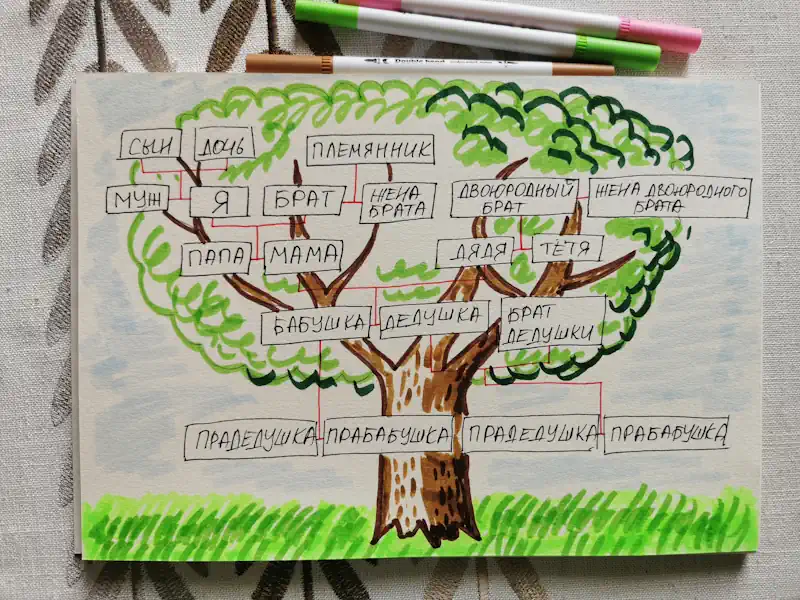 Double head
СЫН ДОЧЬ ПЛЕМЯННИК
МУЖ Я БРАТ ЖЕНА БРАТА ДВОЮРОДНЫЙ БРАТ ЖЕНА ДВОЮРОДНОГО БРАТА
ПАПА МАМА ДЯДЯ ТЁТЯ
БАБУШКА ДЕДУШКА БРАТ ДЕДУШКИ
ПРАДЕДУШКА ПРАБАБУШКА ПРАДЕДУШКА ПРАБАБУШКА